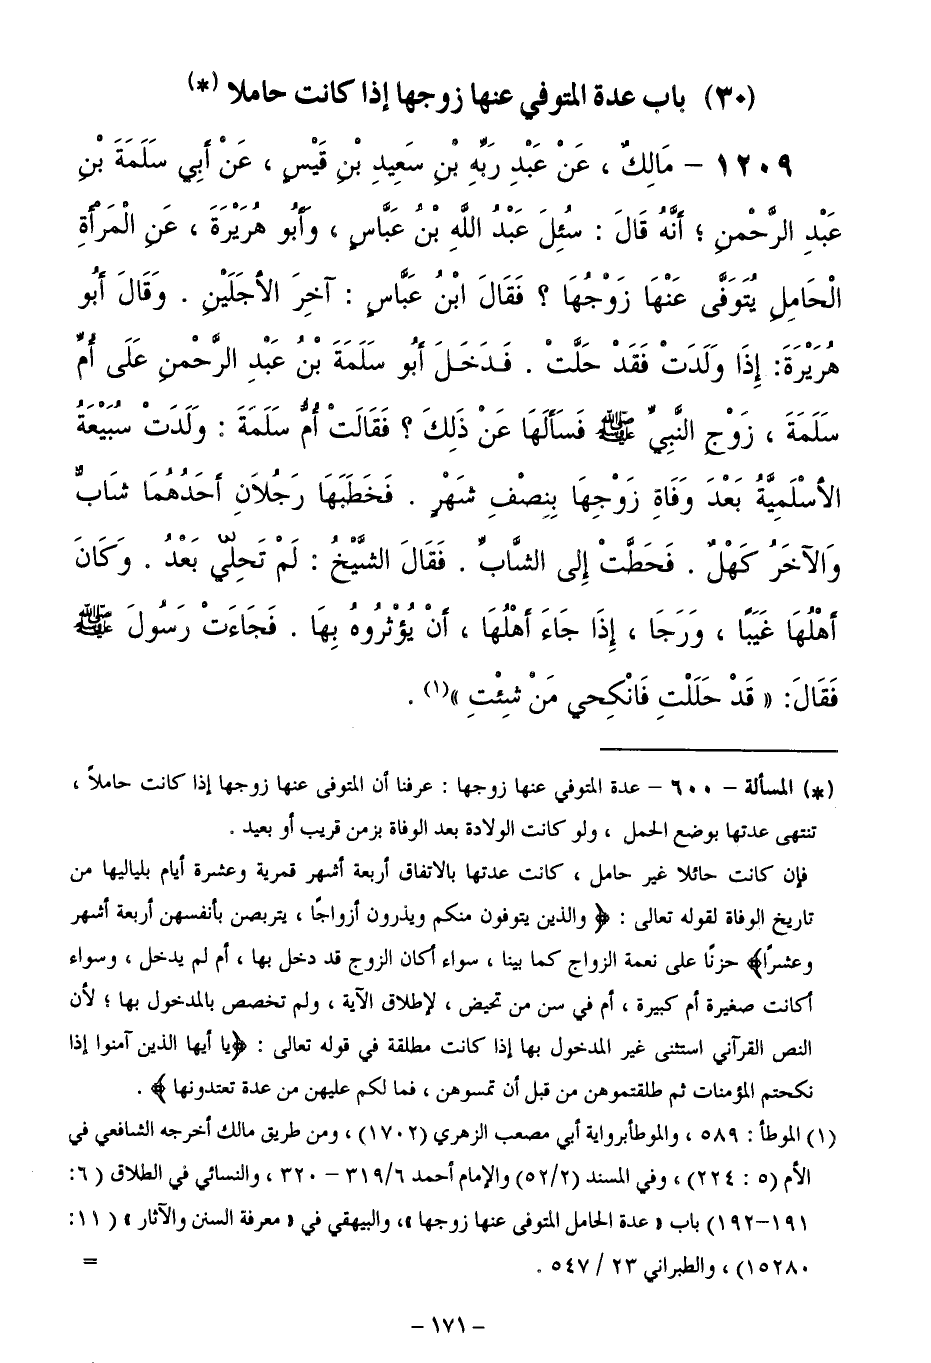 (٣٠) باب عدة المتوفي عنها زوجها إذا كانت حاملا (*)
١٢٠٩ – مَالِكٌ ، عَنْ عَبْدِ رَبِّهِ بْنِ سَعِيدِ بْنِ قَيْسٍ ، عَنْ أَبِي سَلَمَةَ بْنِ
عَبْدِ الرَّحْمنِ ؛ أَنَّهُ قَالَ : سُئِلَ عَبْدُ اللَّهِ بْنُ عَبَّاسٍ ، وَأَبُو هُرَيْرَةَ ، عَنِ الْمَرْأَةِ
الْحَامِلِ يُتَوَفَّى عَنْهَا زَوْجُهَا ؟ فَقَالَ ابْنُ عَبَّاسٍ : آخِرَ الأَجَلَيْنِ . وَقَالَ أَبُو
هُرَيْرَةَ: إِذَا وَلَدَتْ فَقَدْ حَلَّتْ . فَدَخَلَ أَبُو سَلَمَةَ بْنُ عَبْدِ الرَّحْمنِ عَلَى أُمِّ
سَلَمَةَ ، زَوْجِ النَّبِيِّ ﷺ فَسَأَلَهَا عَنْ ذَلِكَ ؟ فَقَالَتْ أُمُّ سَلَمَةَ : وَلَدَتْ سُبَيْعَةُ
الأَسْلَمِيَّةُ بَعْدَ وَفَاةِ زَوْجِهَا بِنِصْفِ شَهْرٍ . فَخَطَبَهَا رَجُلَانِ أَحَدُهُمَا شَابٌّ
وَالآخَرُ كَهْلٌ . فَحَطَّتْ إِلى الشَّابِّ . فَقَالَ الشَّيْخُ : لَمْ تَحِلِّي بَعْدُ . وَكَانَ
أَهْلُهَا غَيَبًا ، وَرَجَا ، إِذَا جَاءَ أَهْلُهَا ، أَنْ يُؤْثِرُوهُ بِهَا . فَجَاءَتْ رَسُولَ ﷺ
فَقَالَ: « قَدْ حَلَلْتِ فَانْكِحِي مَنْ شِئْتِ »(١) .
(*) المسألة – ٦٠٠ – عدة المتوفي عنها زوجها : عرفنا أن المتوفى عنها زوجها إذا كانت حاملاً ،
تنتهى عدتها بوضع الحمل ، ولو كانت الولادة بعد الوفاة بزمن قريب أو بعيد .
فإن كانت حائلا غير حامل ، كانت عدتها بالاتفاق أربعة أشهر قمرية وعشرة أيام بلياليها من
تاريخ الوفاة لقوله تعالى : ﴿ والذين يتوفون منكم ويذرون أزواجًا ، يتربصن بأنفسهن أربعة أشهر
وعشرًا﴾ حزنًا على نعمة الزواج كما بينا ، سواء أكان الزوج قد دخل بها ، أم لم يدخل ، وسواء
أكانت صغيرة أم كبيرة ، أم في سن من تحيض ، لإطلاق الآية ، ولم تخصص بالمدخول بها ؛ لأن
النص القرآني استثنى غير المدخول بها إذا كانت مطلقة في قوله تعالى : ﴿يا أيها الذين آمنوا إذا
نكحتم المؤمنات ثم طلقتموهن من قبل أن تمسوهن ، فما لكم عليهن من عدة تعتدونها ﴾ .
(١) الموطأ : ٥٨٩ ، والموطأبرواية أبي مصعب الزهري (١٧٠٢) ، ومن طريق مالك أخرجه الشافعي في
الأم (٥ : ٢٢٤) ، وفي المسند (٥٢/٢) والإمام أحمد ٣١٩/٦ – ٣٢٠ ، والنسائي في الطلاق ( ٦ :
١٩١–١٩٢) باب « عدة الحامل المتوفى عنها زوجها »، والبيهقي في « معرفة السنن والآثار » ( ١١ :
١٥٢٨٠) ، والطبراني ٢٣ / ٥٤٧ . =
– ١٧١ –